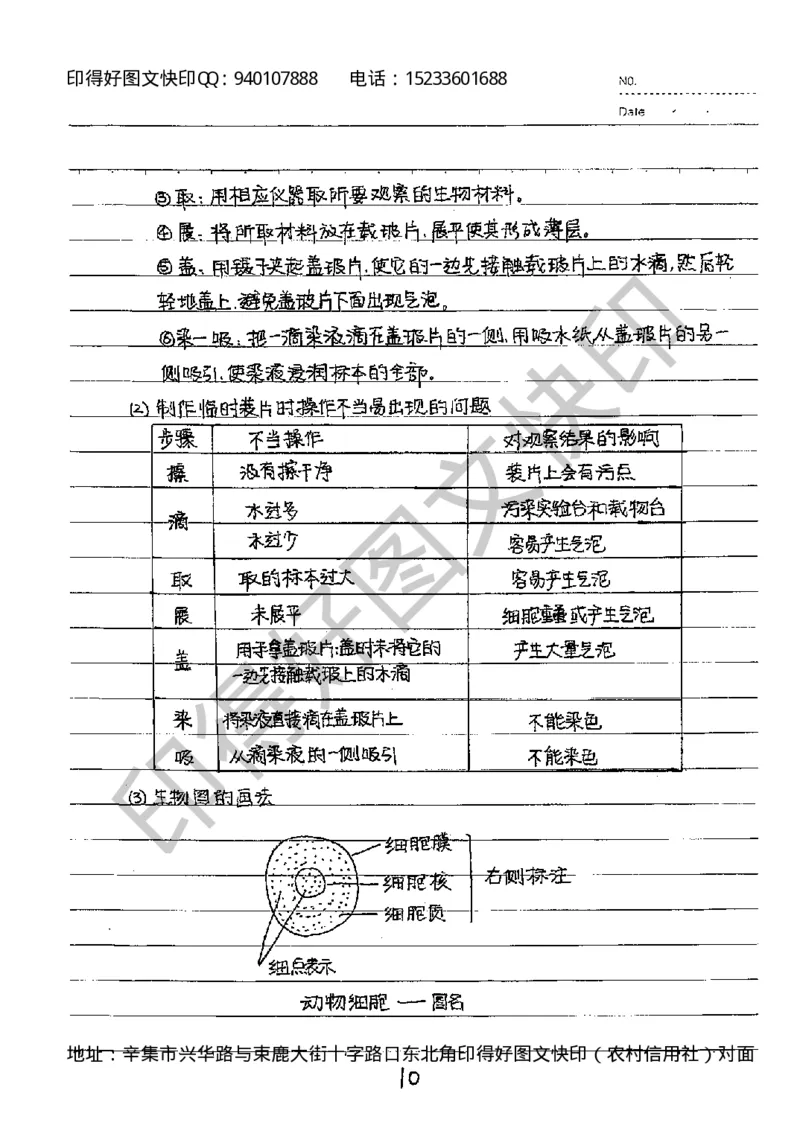 印得好图文快印QQ：940107888 电话：15233601688
NO.
Date
③取：用相应仪器取所要观察的生物材料。
④展：将所取材料放在载玻片,展平使其形成薄层。
⑤盖：用镊子夹起盖玻片,使它的一边先接触载玻片上的水滴,然后轻
轻地盖上,避免盖玻片下面出现气泡。
⑥染一吸：把一滴染液滴在盖玻片的一侧,用吸水纸从盖玻片的另一
侧吸引,使染液浸润标本的全部。
(2)制作临时装片时操作不当易出现的问题
步骤 不当操作 对观察结果的影响
擦 没有擦干净 装片上会有污点
滴 水过多 污染实验台和载物台
水过少 容易产生气泡
取 取的标本过大 容易产生气泡
展 未展平 细胞重叠或产生气泡
盖 用手拿盖玻片;盖时未将它的 产生大量气泡
一边先接触载玻上的水滴
染 将染液直接滴在盖玻片上 不能染色
吸 从滴染液的一侧吸引 不能染色
(3)生物图的画法
细胞膜
细胞核 右侧标注
细胞质
细点表示
动物细胞 — 图名
地址：辛集市兴华路与束鹿大街十字路口东北角印得好图文快印（农村信用社）对面
10
印得好图文快印